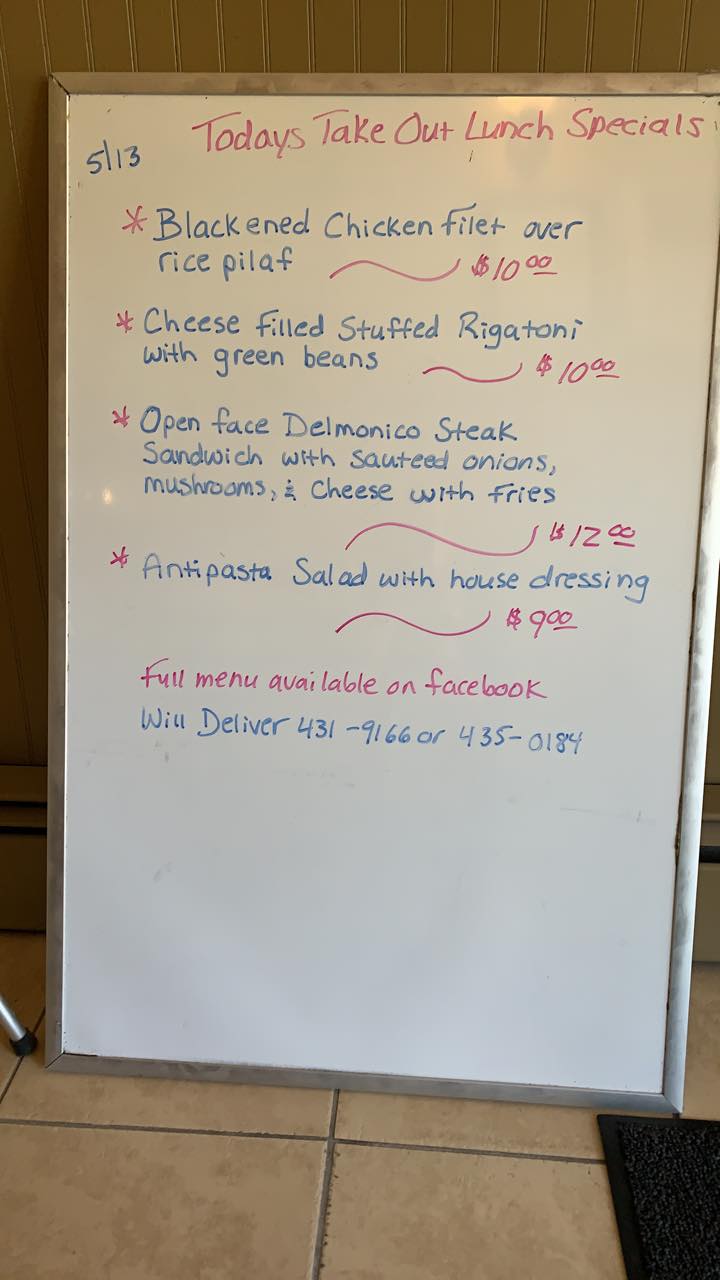 Todays Take Out Lunch Specials
5/13
* Blackened Chicken Filet over
rice pilaf $10.00
* Cheese Filled Stuffed Rigatoni
with green beans $10.00
* Open face Delmonico Steak
Sandwich with sauteed onions,
mushrooms, & Cheese with Fries
$12.00
* Antipasta Salad with house dressing
$9.00
Full menu available on facebook
Will Deliver 431-9166 or 435-0184